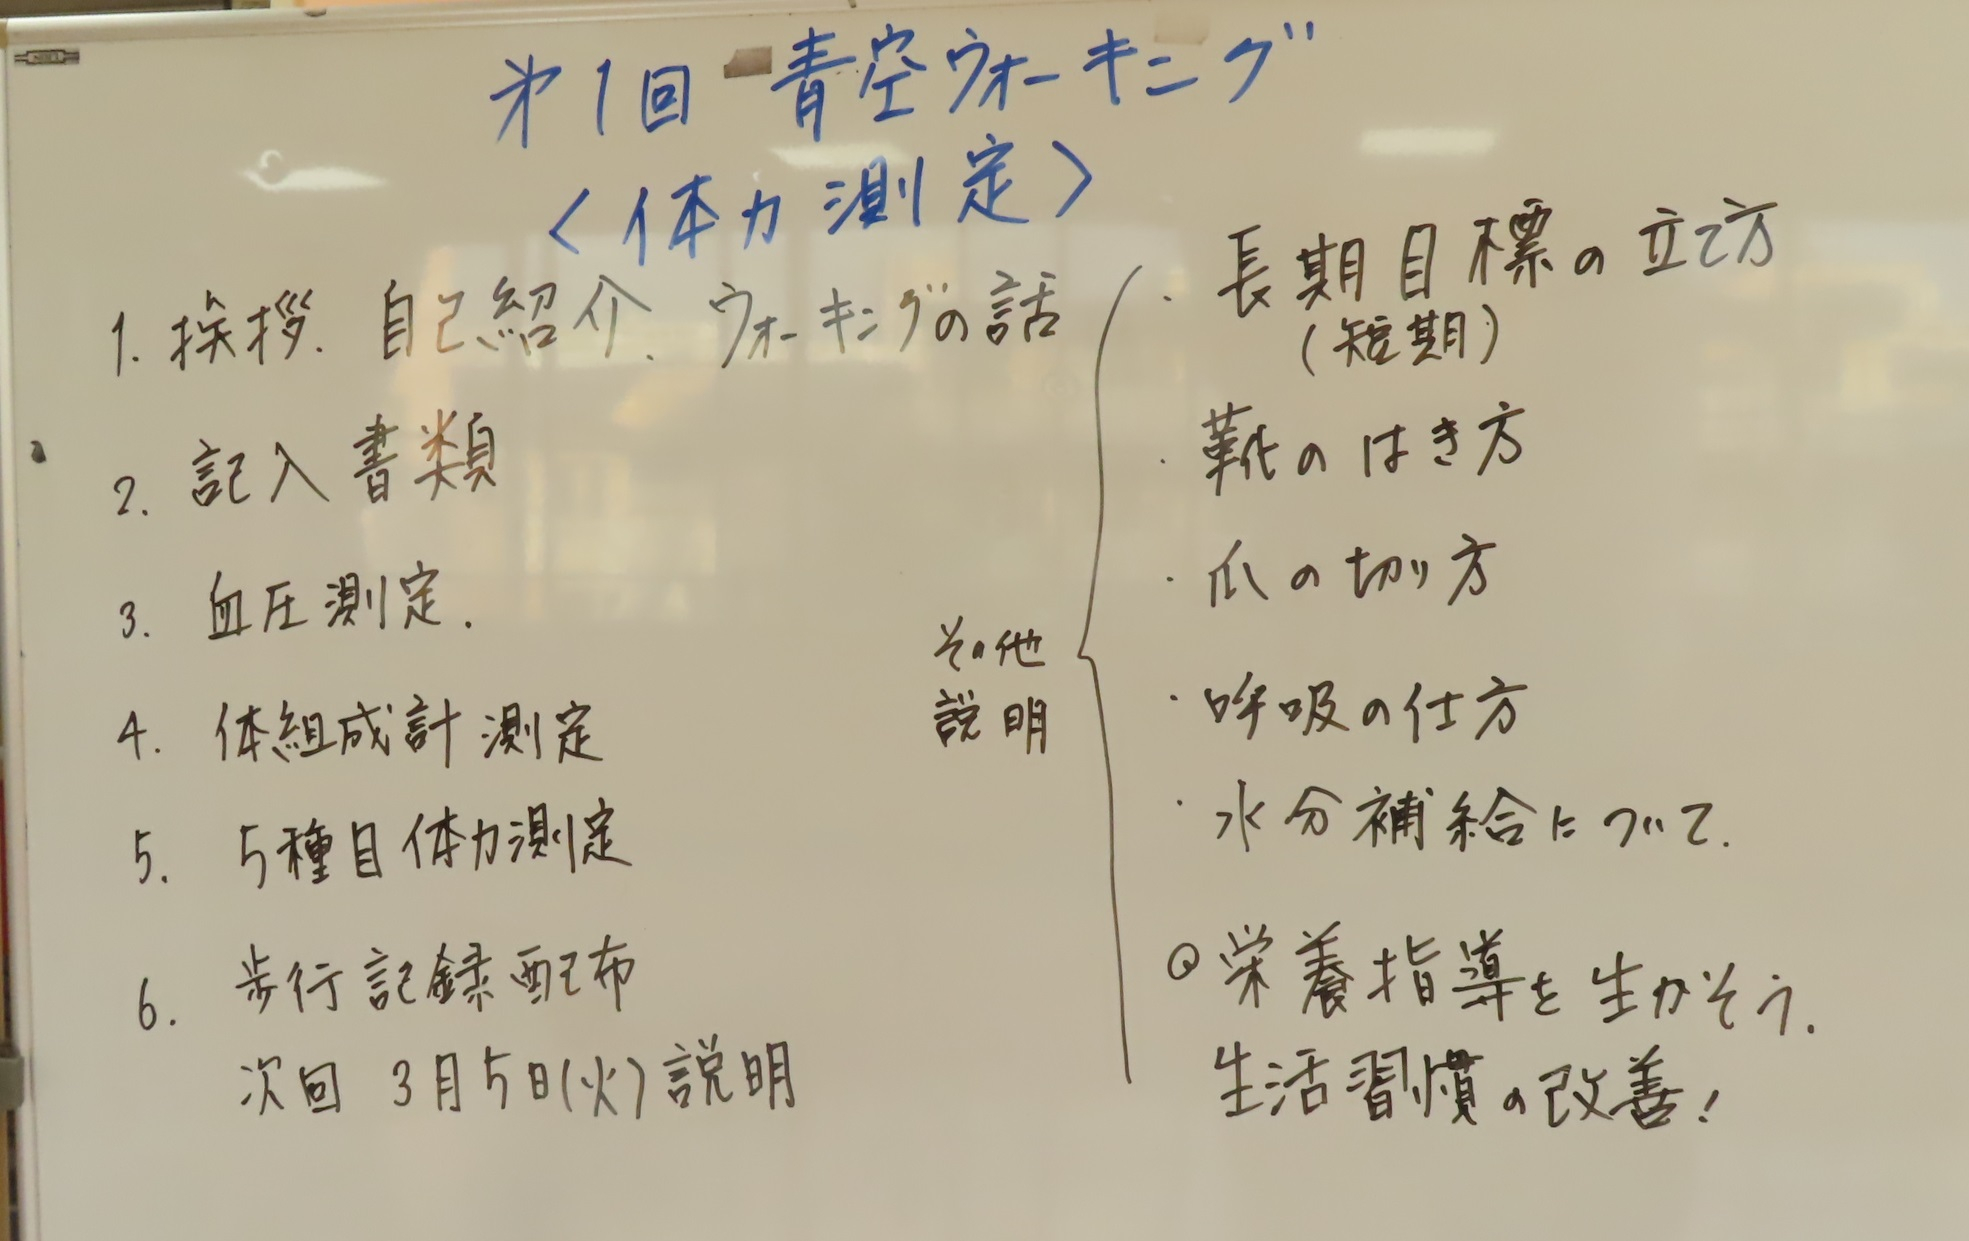 第1回 青空ウォーキング
〈体力測定〉
1. 挨拶. 自己紹介. ウォーキングの話
2. 記入書類
3. 血圧測定.
4. 体組成計測定
5. 5種目体力測定
6. 歩行記録配布
次回 3月5日(火)説明
その他
説明
・長期目標の立て方
(短期)
・靴のはき方
・爪の切り方
・呼吸の仕方
・水分補給について.
◎栄養指導を生かそう.
生活習慣の改善!